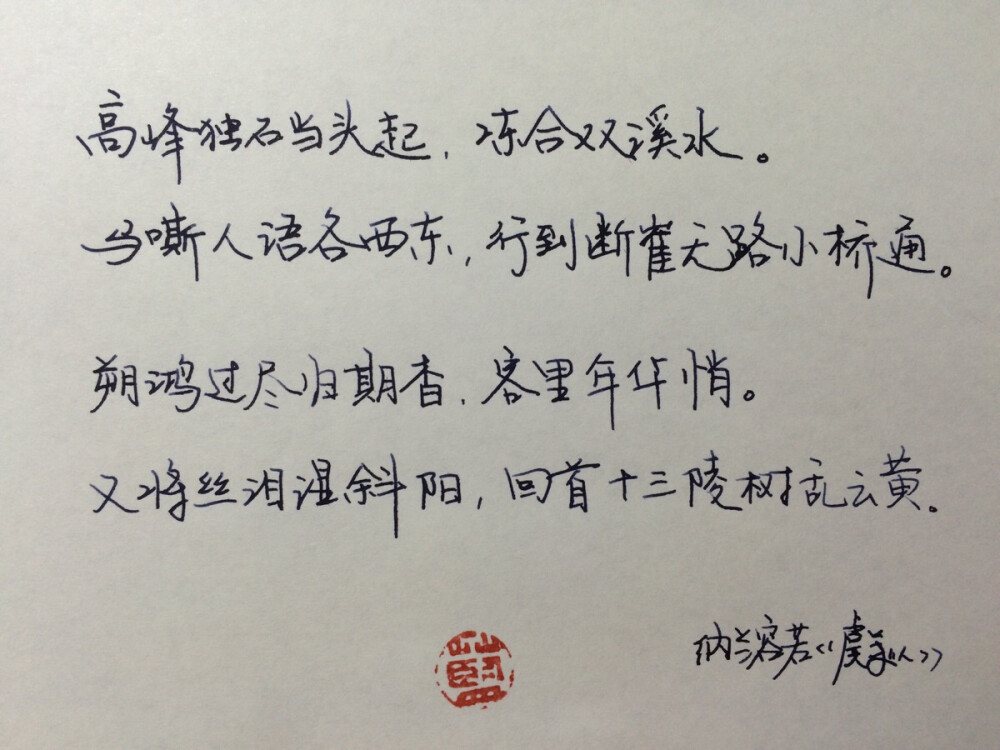 高峰独石当头起，冻合双溪水。
马嘶人语各西东，行到断崔无路小桥通。
朔鸿过尽归期杳，客里年华悄。
又将丝泪湿斜阳，回首十三陵树乱云黄。
纳兰容若《虞美人》